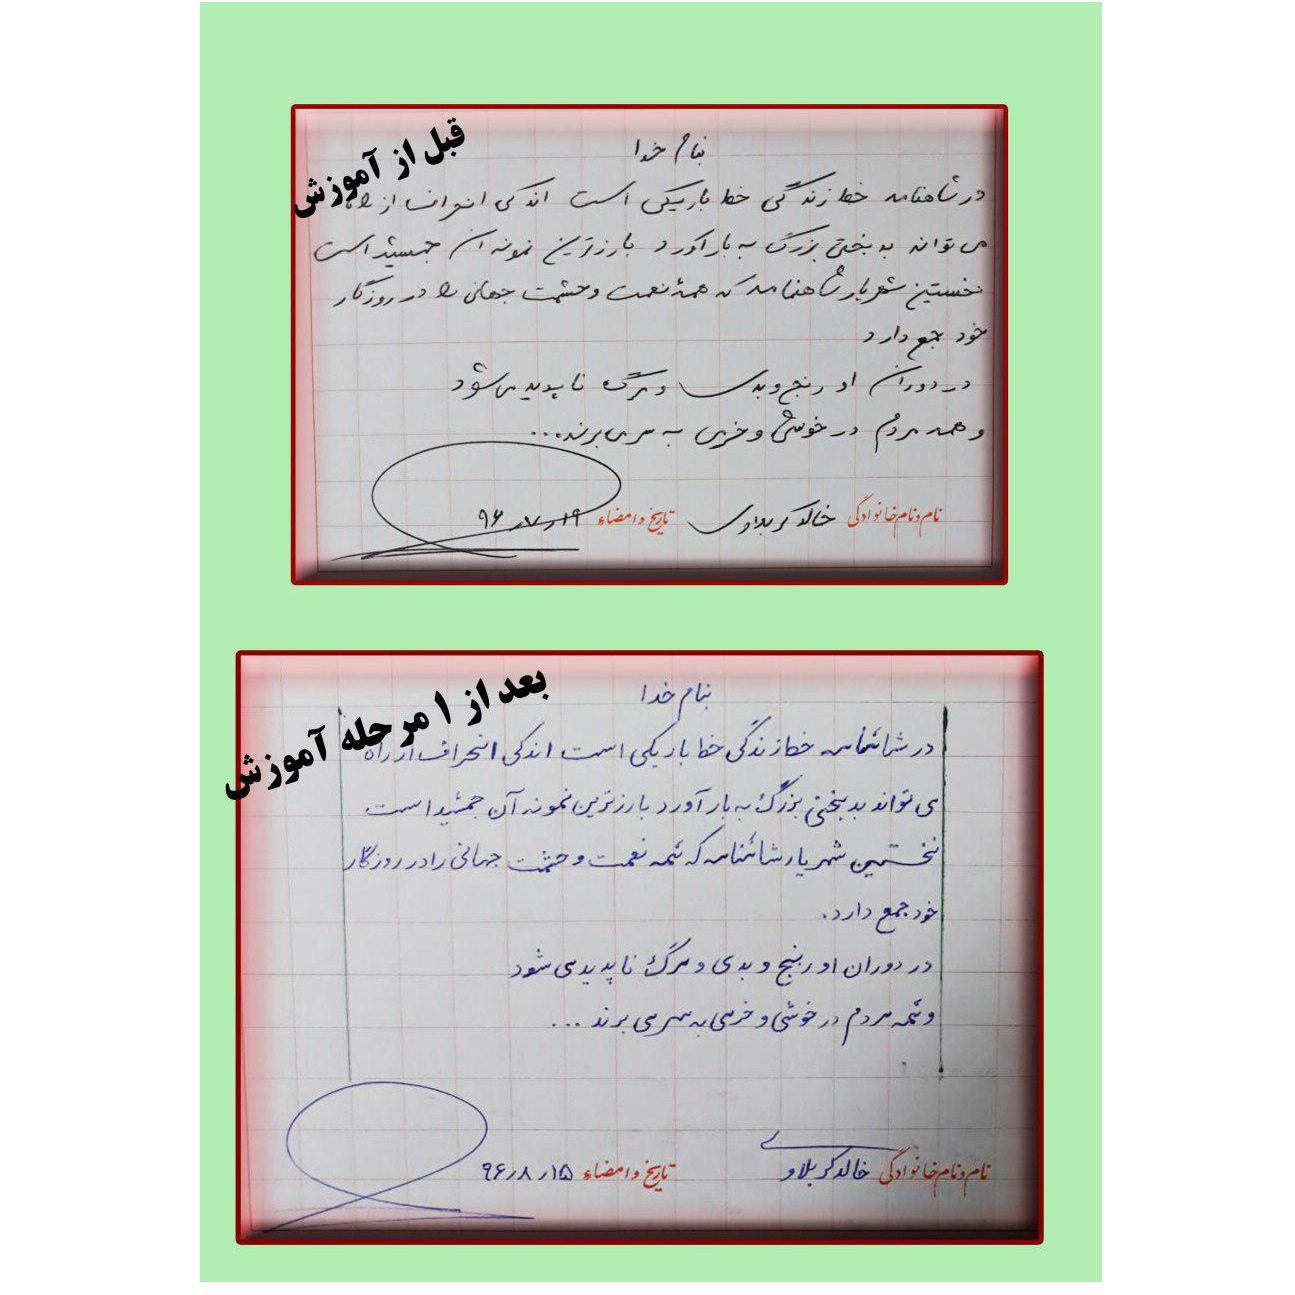 قبل از آموزش
بنام خدا
در شاهنامه خط زندگی خط باریکی است اندکی انحراف از راه
می تواند بدبختی بزرگ به بار آورد بارزترین نمونه آن جمشید است
نخستین شهریار شاهنامه که همهٔ نعمت و حشمت جهانی را در روزگار
خود جمع دارد
در دوران او رنج و بدی و مرگ ناپدید می شود
و همه مردم در خوشی و خرمی به سر می برند...
نام و نام خانوادگی خالد کربلاوی تاریخ و امضاء ۹۶٫۷٫۱۹
بعد از ۱ مرحله آموزش
بنام خدا
در شاهنامه خط زندگی خط باریکی است اندکی انحراف از راه
می تواند بدبختی بزرگ به بار آورد بارزترین نمونه آن جمشید است
نخستین شهریار شاهنامه که همه نعمت و حشمت جهانی را در روزگار
خود جمع دارد.
در دوران او رنج و بدی و مرگ ناپدید می شود
و همه مردم در خوشی و خرمی به سر می برند ...
نام و نام خانوادگی خالد کربلاوی تاریخ و امضاء ۹۶٫۸٫۱۵